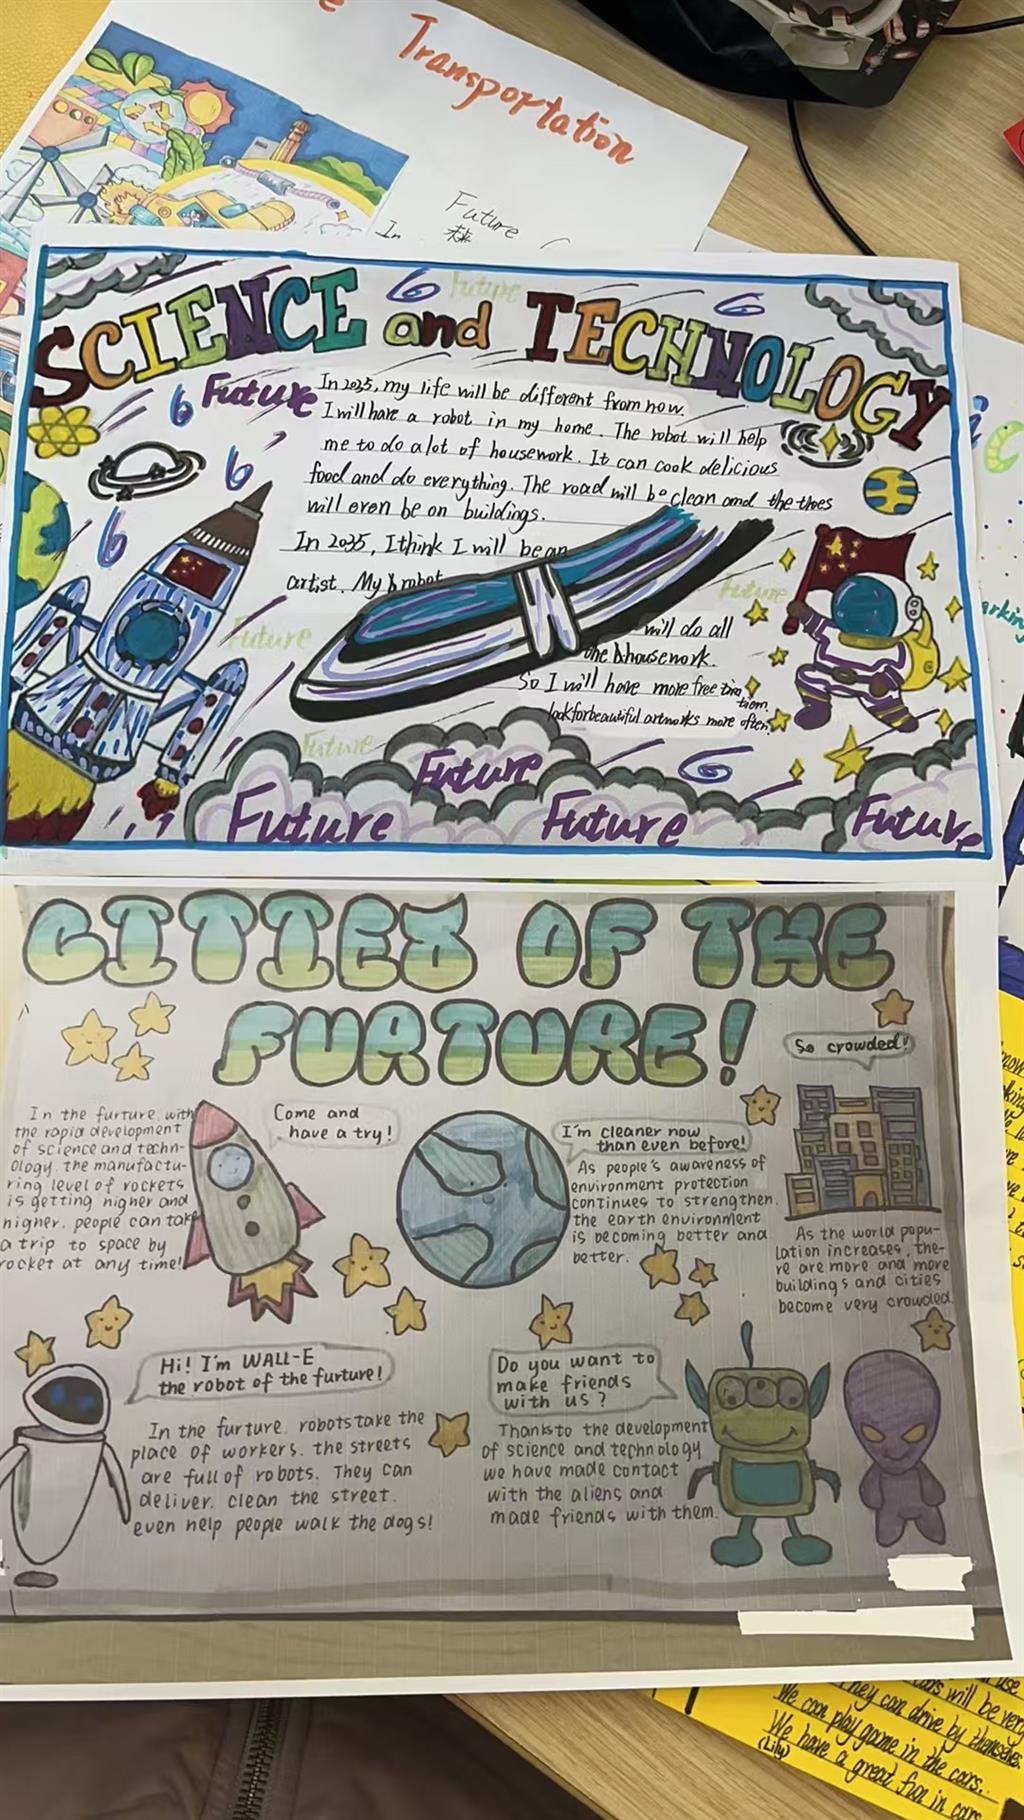 Transportation
Future
In
SCIENCE and TECHNOLOGY
Future
Future
In 2035, my life will be different from now.
I will have a robot in my home. The robot will help
me to do a lot of housework. It can cook delicious
food and do everything. The road will be clean and the trees
will even be on buildings.
In 2035, I think I will be an
artist. My robot
will do all
the housework.
So I will have more free time
look for beautiful artworks more often.
Future
Future
Future
Future
Future
Future
Future
CITIES OF THE
FURTURE!
So crowded!
In the furture, with
the rapid development
of science and techn-
ology, the manufactu-
ring level of rockets
is getting higher and
higher. people can take
a trip to space by
rocket at any time!
Come and
have a try!
I'm cleaner now
than even before!
As people's awareness of
environment protection
continues to strengthen.
the earth environment
is becoming better and
better.
As the world popu-
lation increases, the-
re are more and more
buildings and cities
become very crowded.
Hi! I'm WALL-E
the robot of the furture!
In the furture. robots take the
place of workers. the streets
are full of robots. They can
deliver. clean the street.
even help people walk the dogs!
Do you want to
make friends
with us?
Thanks to the development
of science and technology
we have made contact
with the aliens and
made friends with them.
will be very
They can drive by themselves.
We can play game in the cars.
We have a great fun in cars
(Lily)